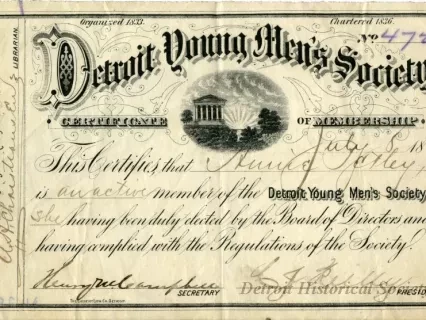 Organized 1833. Chartered 1836.
No 472
Detroit Young Men's Society
CERTIFICATE OF MEMBERSHIP
July 8 18
This Certifies that
is an active member of the Detroit Young Men's Society
she having been duly elected by the Board of Directors and
having complied with the Regulations of the Society.
Henry M Campbell
SECRETARY
PRESID
Detroit Historical Society
LIBRARIAN.